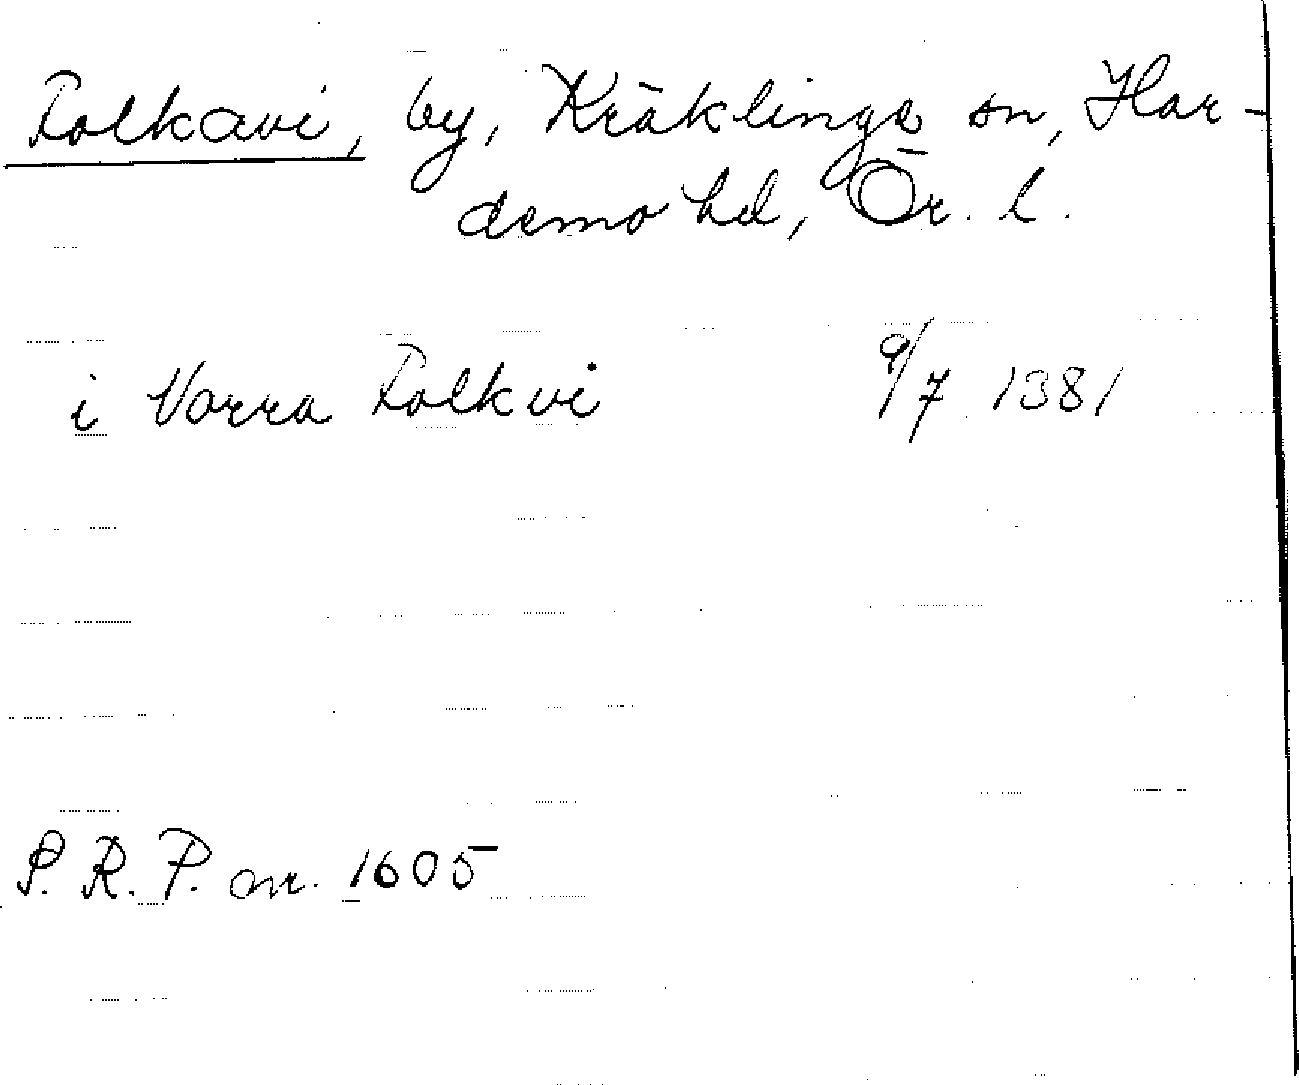 Folkavi, by, Kräklinge sn, Har-
demo hd, Ör. l.
i Varra Folkvi 9/7 1381
S. R. P. nr. 1605